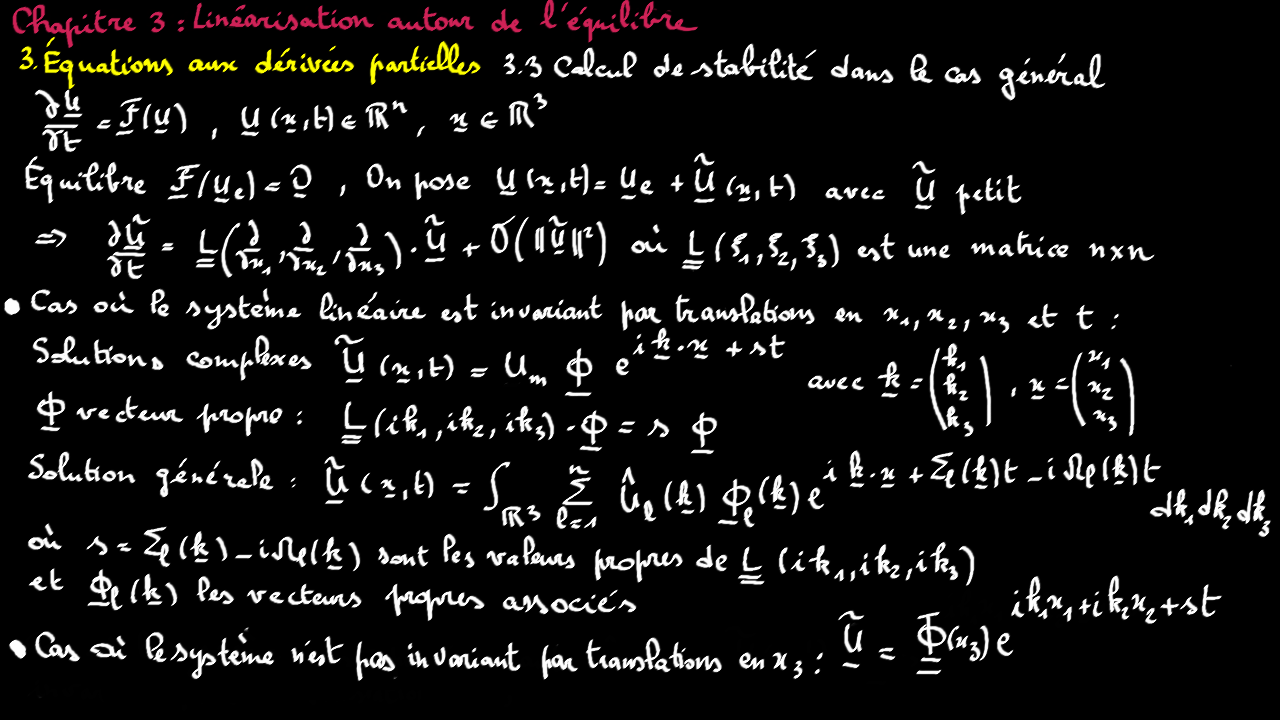 Chapitre 3 : Linéarisation autour de l'équilibre
3. Équations aux dérivées partielles 3.3 Calcul de stabilité dans le cas général
∂U/∂t = F(U) , U(x,t) ∈ ℝⁿ, x ∈ ℝ³
Équilibre F(Uₑ) = 0 , On pose U(x,t) = Uₑ + Ũ(x,t) avec Ũ petit
⇒ ∂Ũ/∂t = L(∂/∂x₁, ∂/∂x₂, ∂/∂x₃) · Ũ + O(‖Ũ‖²) où L(ξ₁,ξ₂,ξ₃) est une matrice n×n
• Cas où le système linéaire est invariant par translations en x₁, x₂, x₃ et t :
Solutions complexes Ũ(x,t) = Uₘ Φ e^{i k·x + st} avec k = (k₁ k₂ k₃), x = (x₁ x₂ x₃)
Φ vecteur propre : L(ik₁, ik₂, ik₃) · Φ = s Φ
Solution générale : Ũ(x,t) = ∫_{ℝ³} Σ_{ℓ=1}^{n} Û_ℓ(k) Φ_ℓ(k) e^{i k·x + Σ_ℓ(k)t − iΩ_ℓ(k)t} dk₁ dk₂ dk₃
où s = Σ_ℓ(k) − iΩ_ℓ(k) sont les valeurs propres de L(ik₁, ik₂, ik₃)
et Φ_ℓ(k) les vecteurs propres associés
• Cas où le système n'est pas invariant par translations en x₃ : Ũ = Φ(x₃) e^{ik₁x₁ + ik₂x₂ + st}